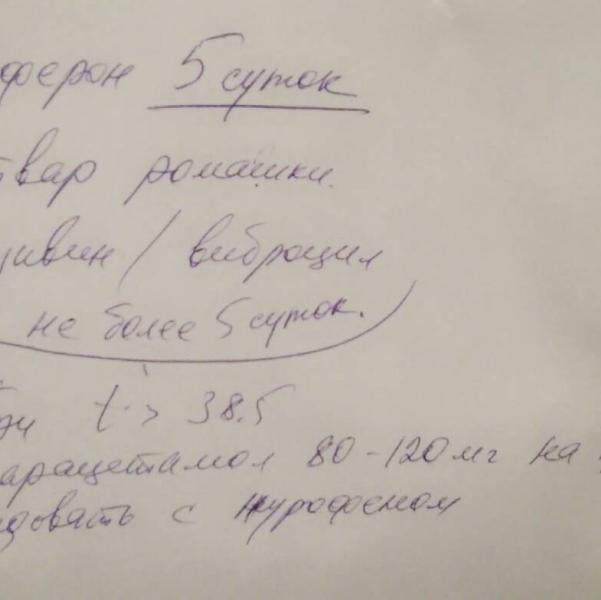 ферон 5 суток
твар ромашки.
ивин / виброцил
не более 5 суток.
t° > 38.5
арацетамол 80-120 мг на
довать с нурофеном